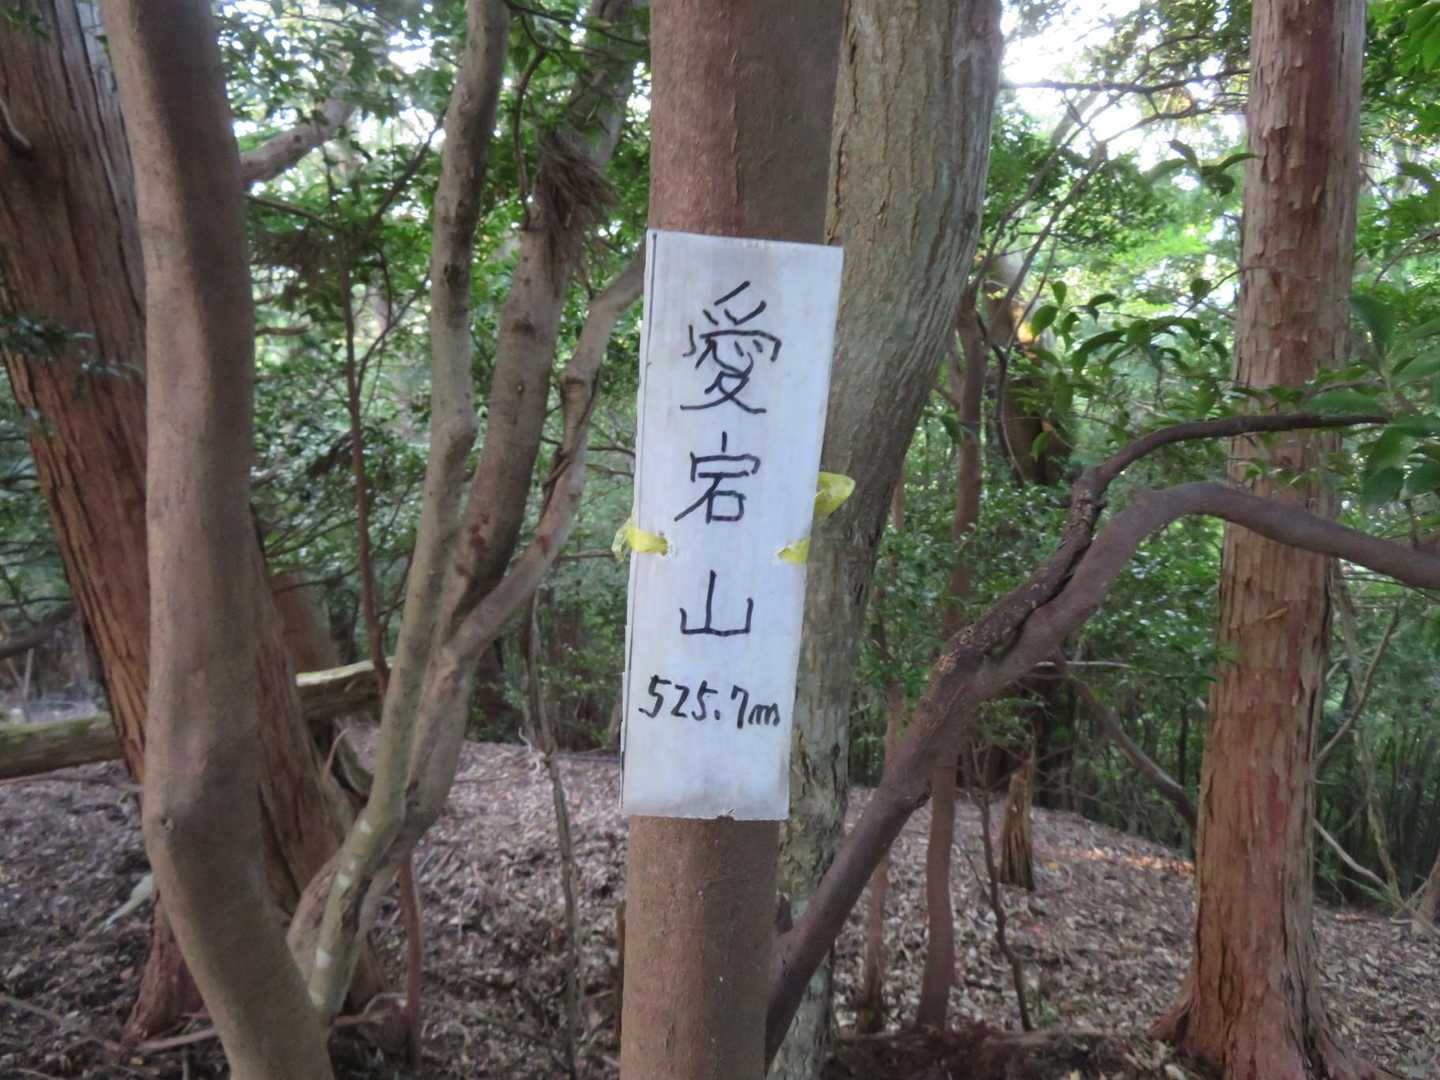 愛宕山
525.7m